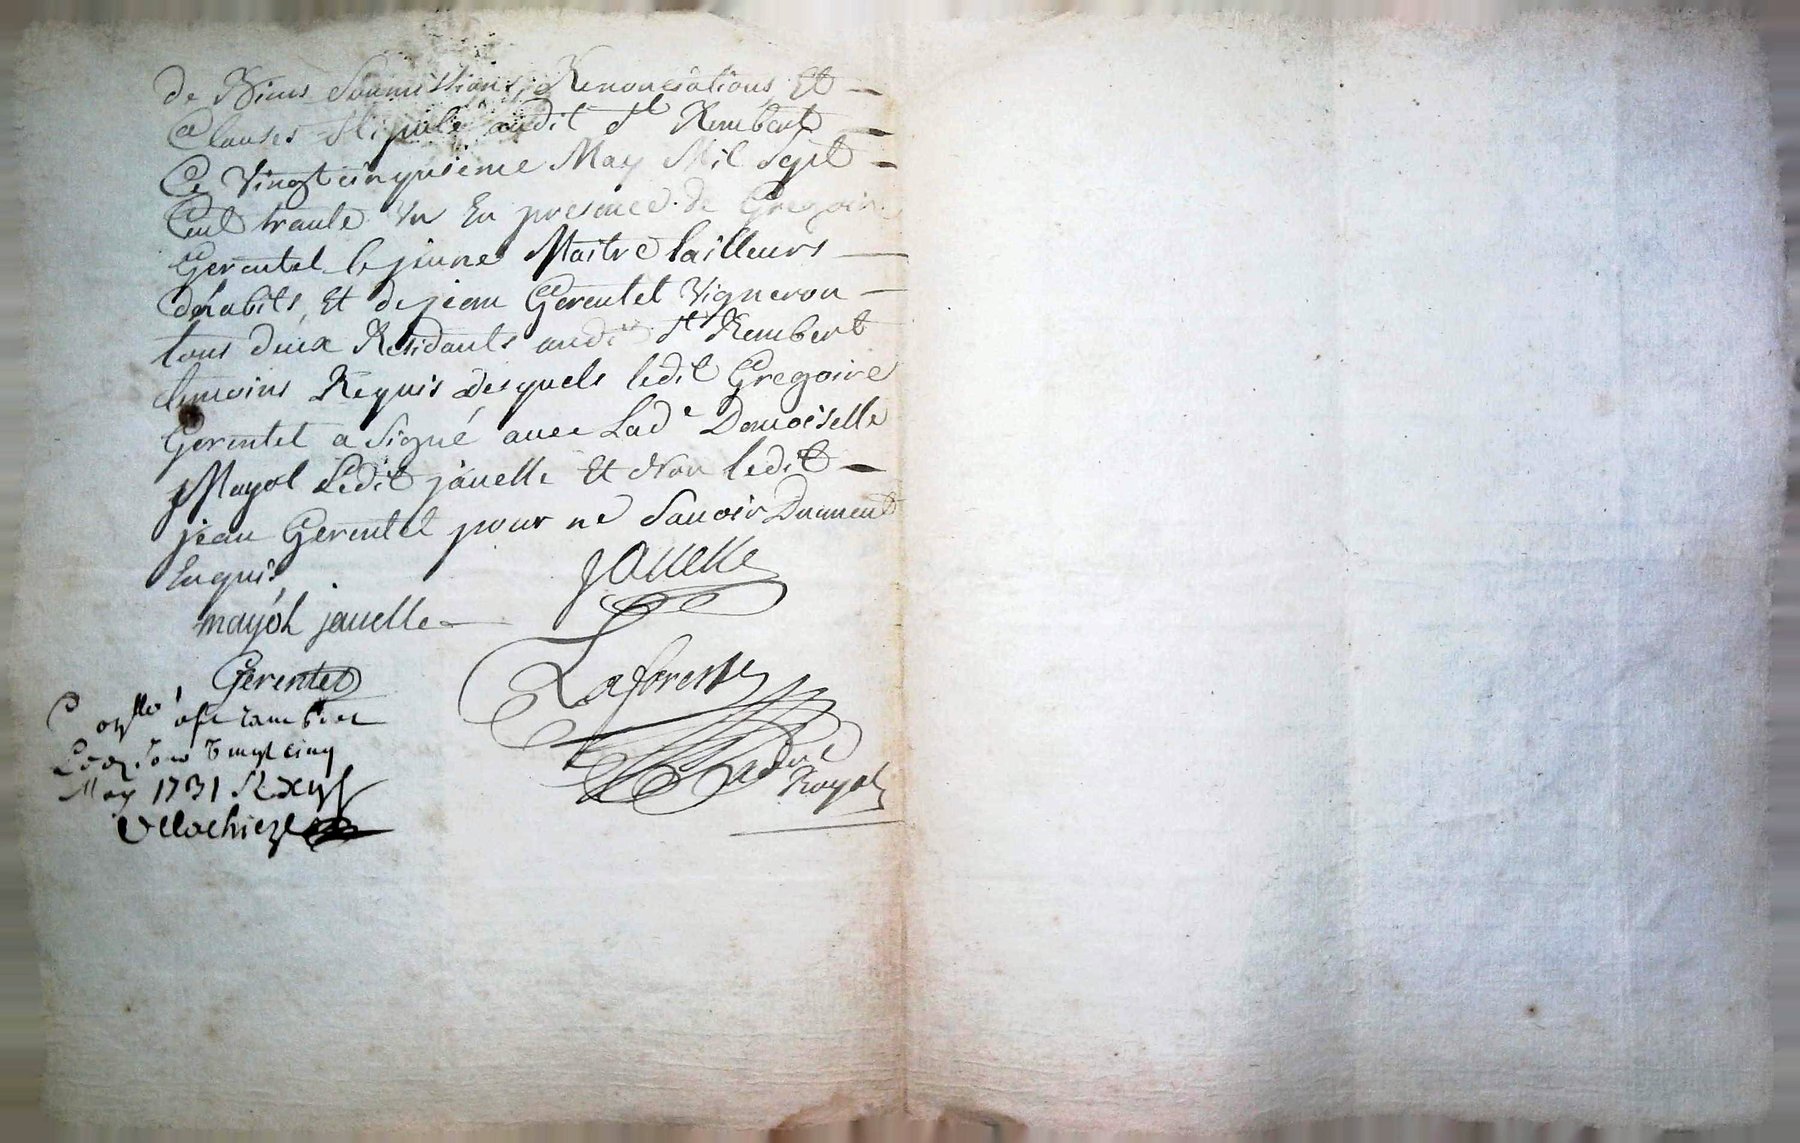 de Biens Soumissions, Renonciations Et
Clauses Stipulé audit St Rembert
Ce Vingt cinquieme May Mil Sept
Cent trante Un En presence de Gregoire
Gerentet le jeune Maitre tailleurs
d'habits, Et de jean Gerentet Vigneron
tous deux Residants audit St Rembert
temoins Requis desquels ledit Gregoire
Gerentet a Signé avec Lade Demoiselle
Mayol Ledit jauelle Et Non ledit
jean Gerentet pour ne Sauoir Duement
Enquis
jauelle
mayol jauelle
Gerentet
Laforest
Nore Royal
Conllé a St rambert
Le vingt cinq
May 1731 R